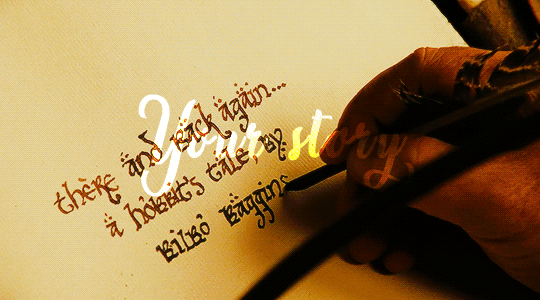 there and back again...
a hobbit's tale, by
Bilbo Baggins
Your story